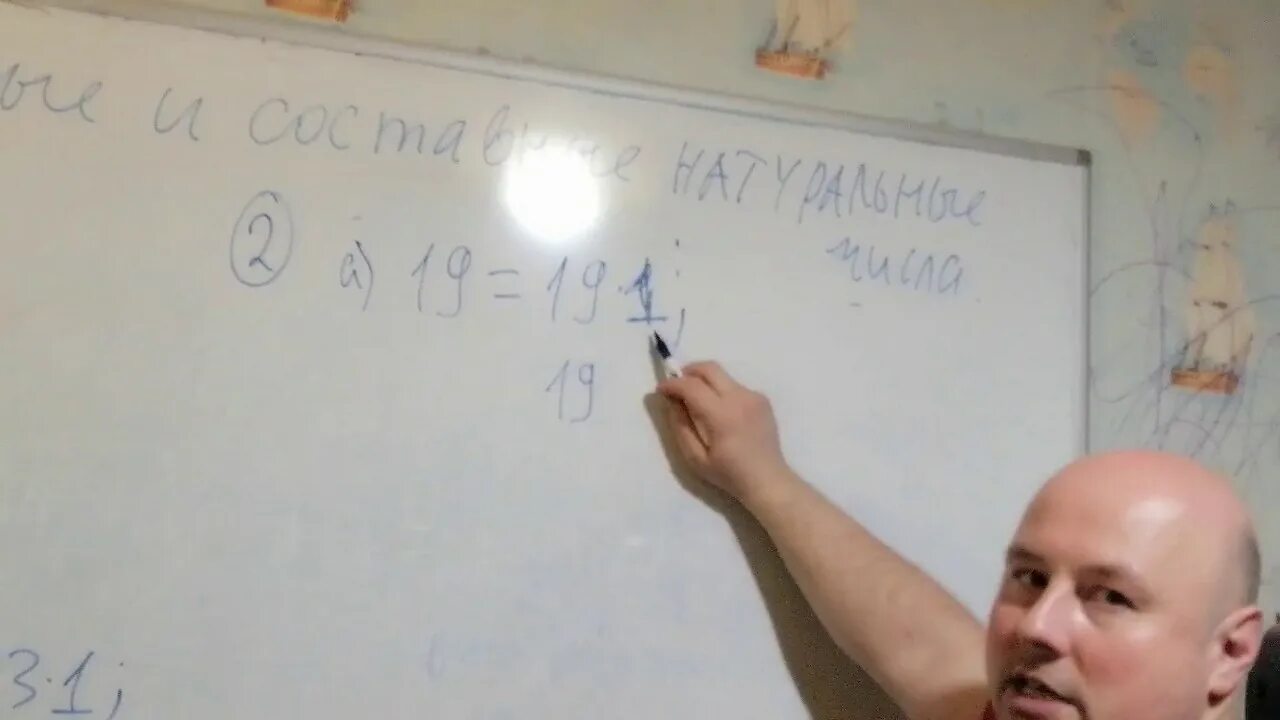 ые и составные НАТУРАЛЬНЫЕ
числа.
2 а) 19 = 19·1;
19
3·1;